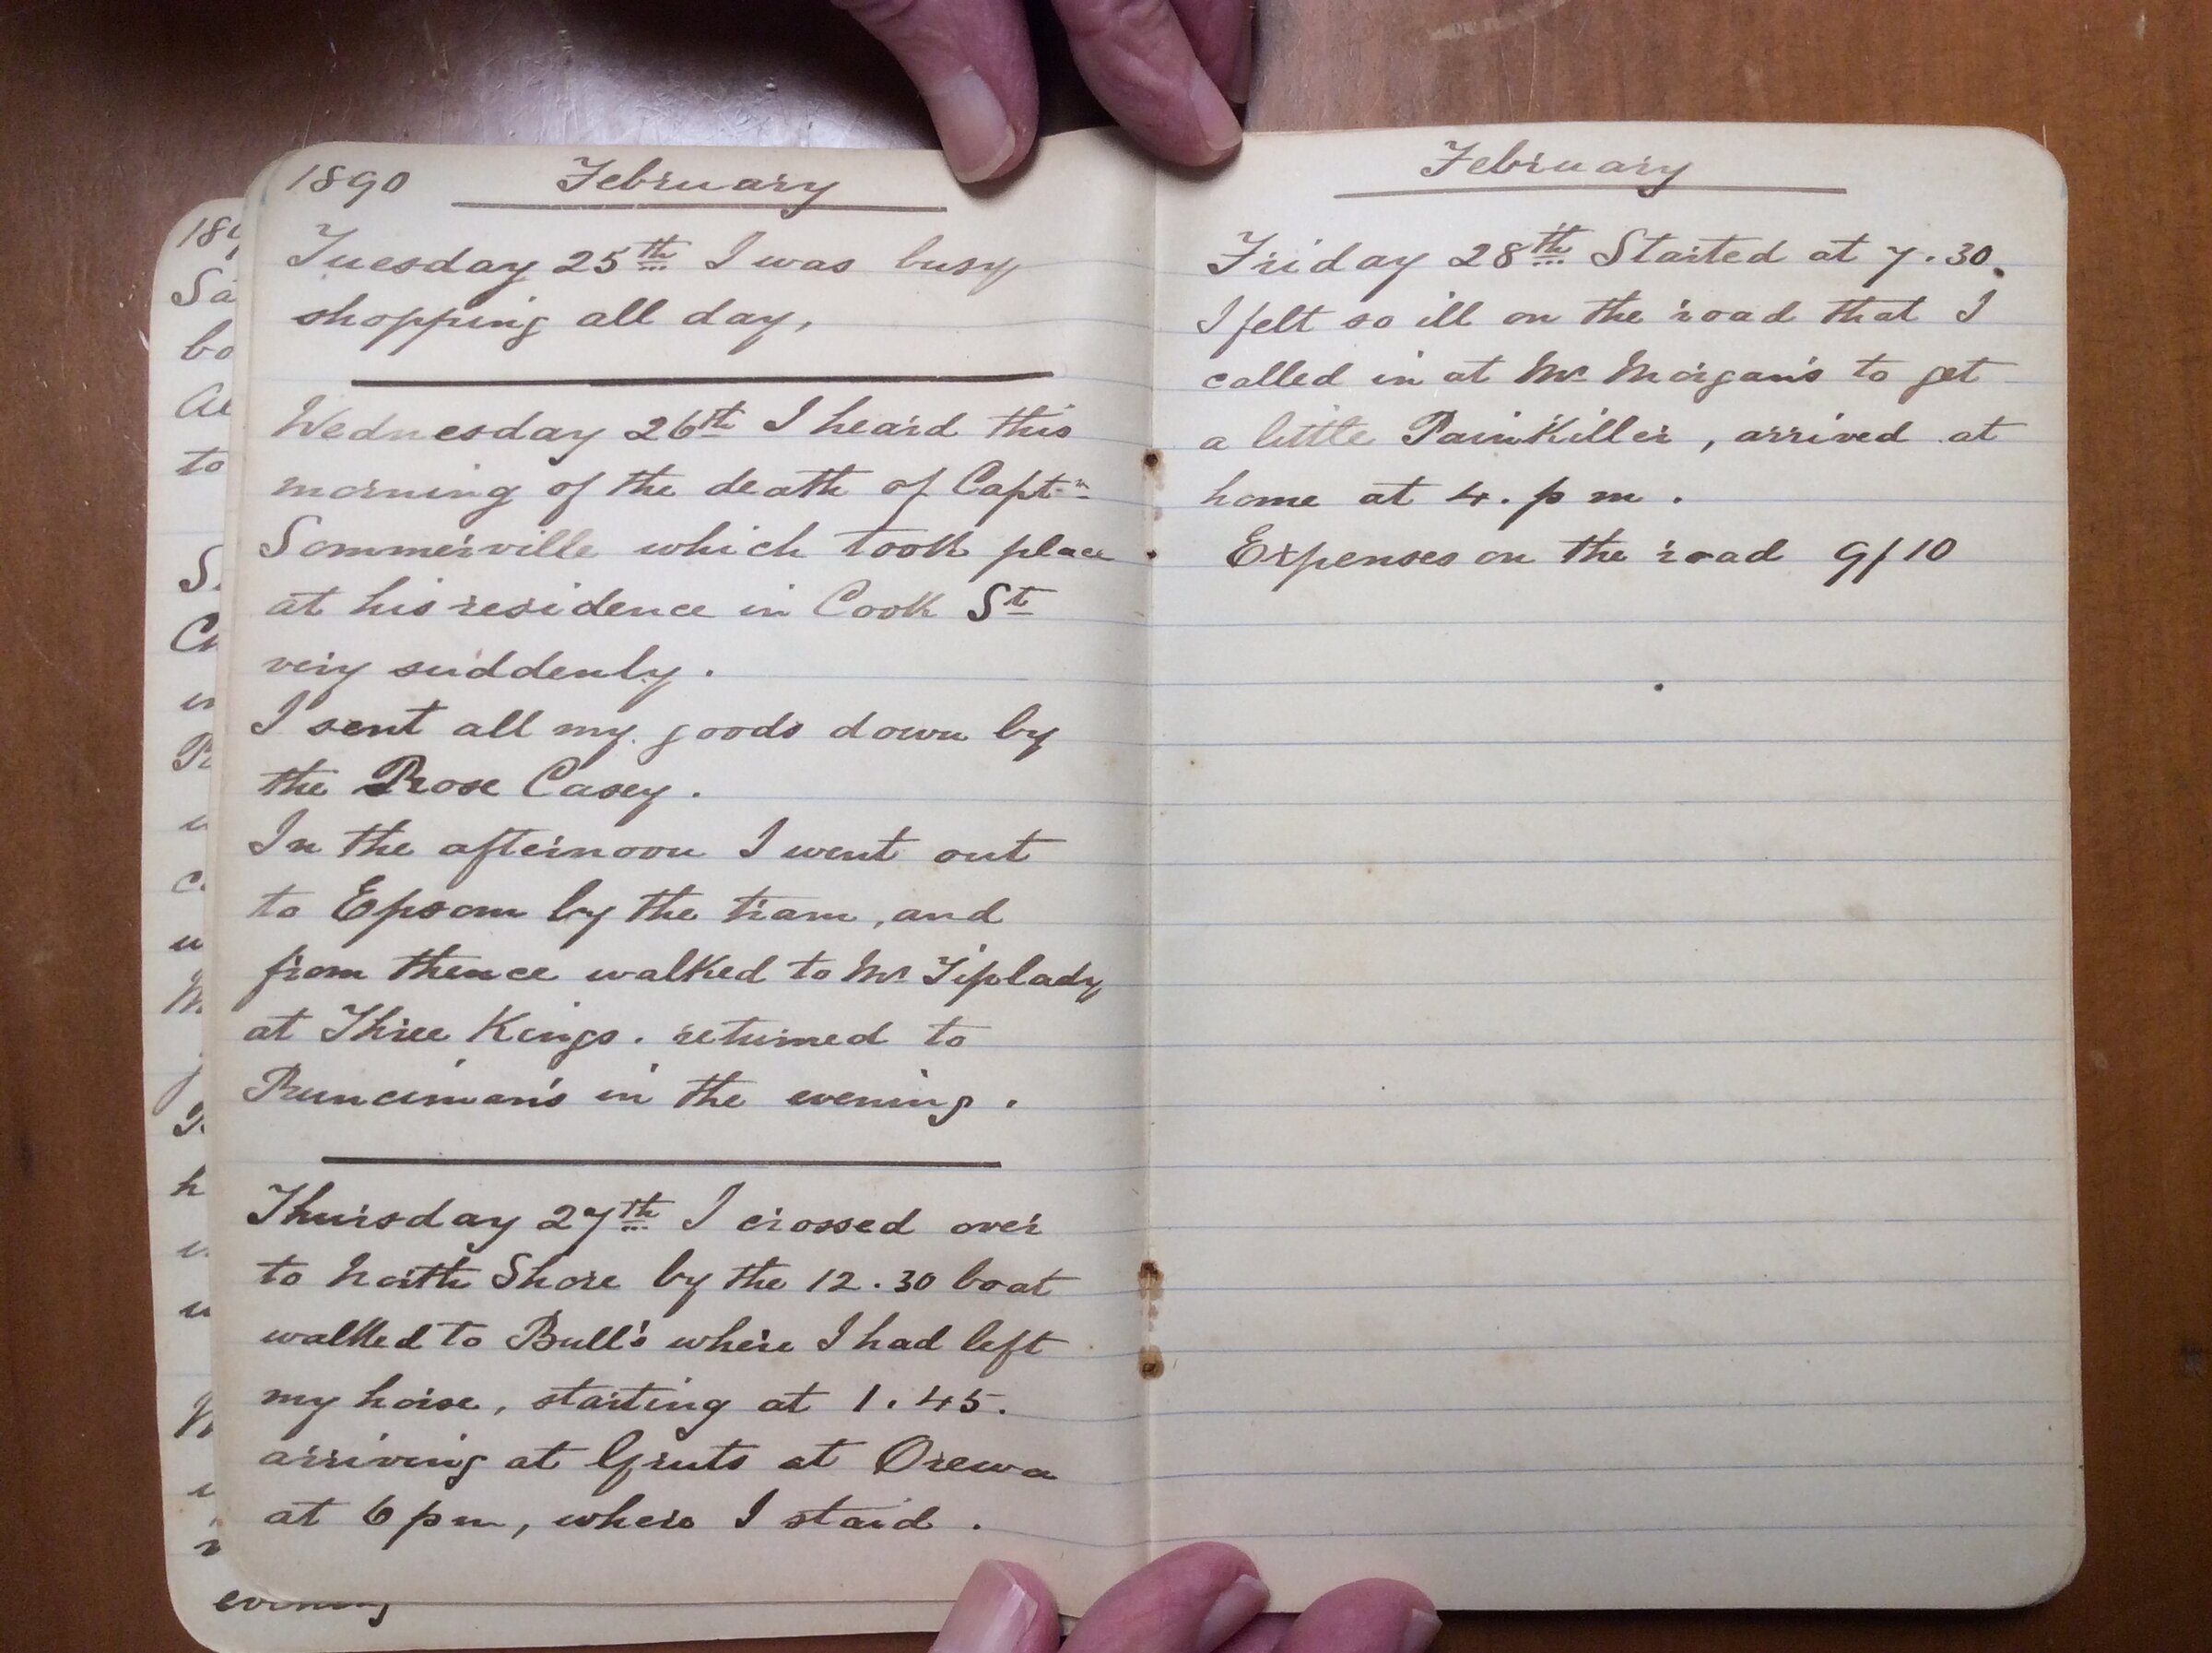 1890 February
Tuesday 25th I was busy
shopping all day,
Wednesday 26th I heard this
morning of the death of Captn
Sommerville which took place
at his residence in Cook St
very suddenly.
I sent all my goods down by
the Rose Casey.
In the afternoon I went out
to Epsom by the tram, and
from thence walked to Mr Tiplady
at Three Kings. returned to
Runciman's in the evening.
Thursday 27th I crossed over
to North Shore by the 12.30 boat
walked to Bull's where I had left
my horse, starting at 1.45.
arriving at Gruts at Orewa
at 6 pm, where I staid.
evening
February
Friday 28th Started at 7.30.
I felt so ill on the road that I
called in at Mr Morgan's to get
a little PainKiller, arrived at
home at 4. p m.
Expenses on the road 9/10